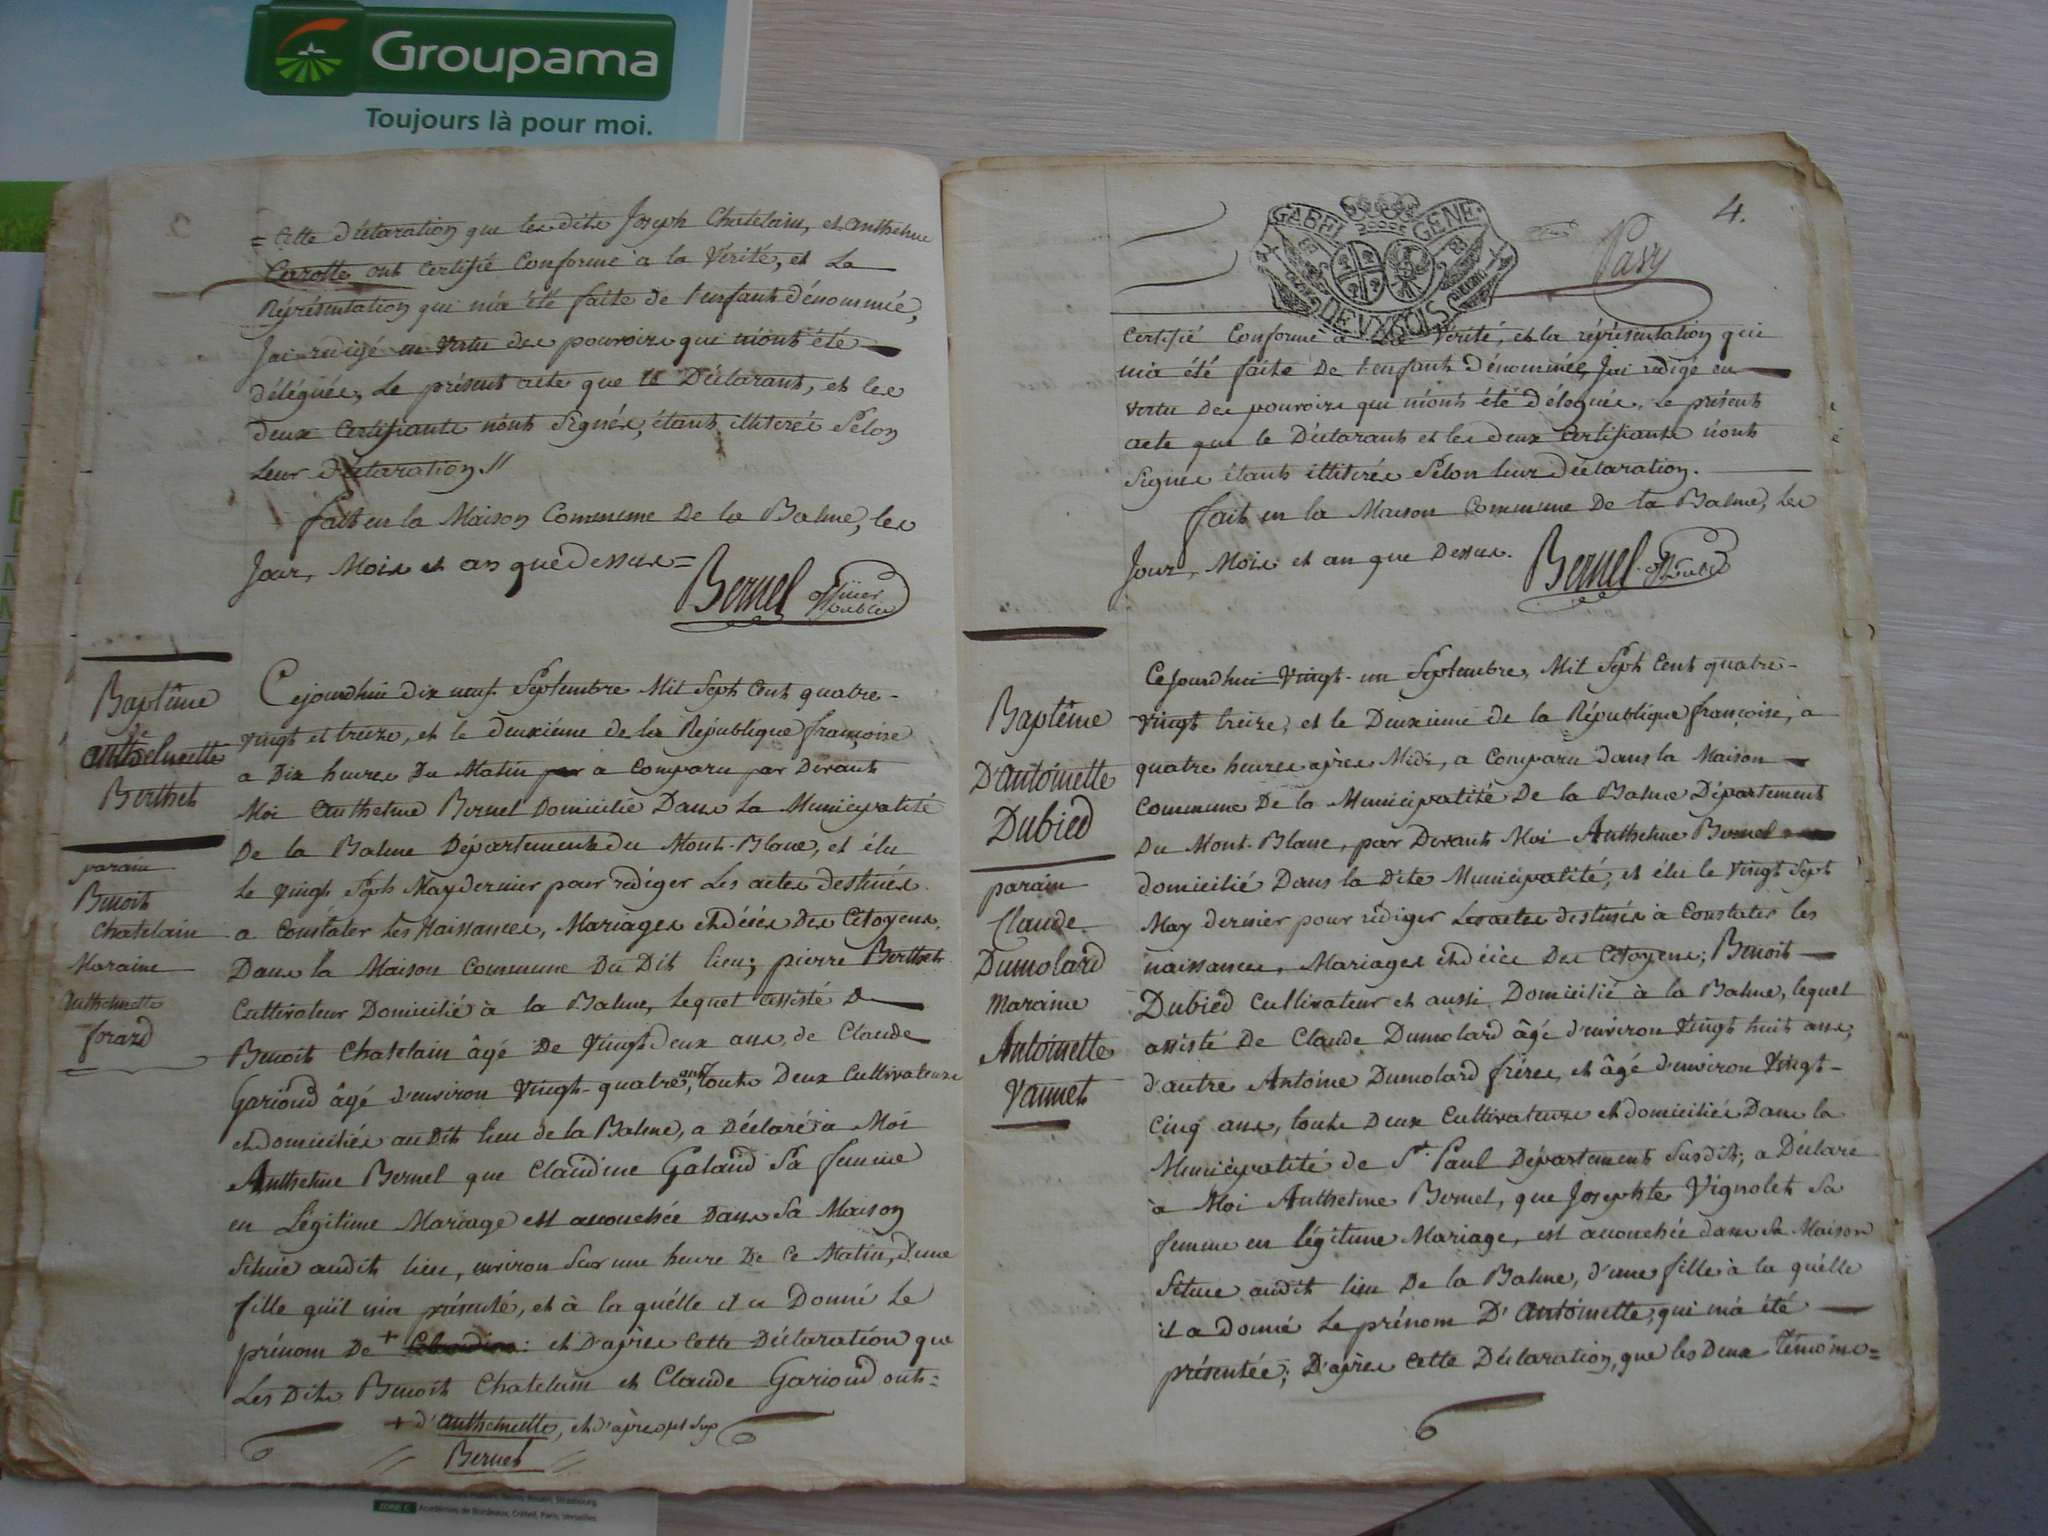 Groupama
Toujours là pour moi.
= Cette déclaration que les dits Joseph Chatelain, et Anthelme
Carotte ont Certifié Conforme a la Verité, et La
Réprésentation qui m'a été faite de l'enfant dénommée,
J'ai redigé en vertu des pouvoirs qui m'ont été
délégués, Le présent acte que le Déclarant, et les
deux Certifiants n'ont Signés, étant illiterés Selon
Leur déclaration //
fait en la Maison Commune De la Balme, les
Jour, Mois et an que dessus =
Bernel officier Public
Baptême
de
Anthelmette
Berthet
parain
Benoit
Chatelain
Maraine
Anthelmette
forard
Cejourdhui dix neuf Septembre Mil Sept Cent quatre-
vingt et treize, et le deuxiéme de la République françoise
a Dix heures Du Matin par a Comparu par Devant
Moi Anthelme Bernel Domicilié Dans La Municipalité
De la Balme Département du Mont-Blanc, et élu
Le vingt Sept May dernier pour rédiger Les actes destinés
a Constater les Naissances, Mariages et décés des Citoyens,
Dans la Maison Commune Du Dit lieu; pierre Berthet
Cultivateur Domicilié à la Balme, Lequel assisté De
Benoit Chatelain âgé De Vingt deux ans, de Claude
Gariond âgé d'environ Vingt-quatre ans, touts Deux Cultivateurs
et domiciliés au Dit lieu de la Balme, a Déclaré à Moi
Anthelme Bernel que Claudine Galand Sa femme
en Légitime Mariage est accouchée Dans Sa Maison
Située audit lieu, environ Sur une heure De Ce Matin, d'une
fille qu'il m'a présenté, et à la quélle il a Donné Le
prénom De + Claudine: et D'après Cette Déclaration que
Les Dits Benoit Chatelain et Claude Gariond ont =
+ d'Anthelmette, et d'après
Bernel
4.
GABEL GENE.
DEUX SOLS
certifié Conforme à la Vérité, et la réprésentation qui
m'a été faite De l'enfant dénommée, J'ai redigé en
vertu des pouvoirs qui m'ont été délegués, Le présent
acte que le Déclarant et les deux Certifiants n'ont
Signés étants illiterés Selon leur déclaration.
fait en la Maison Commune De la Balme, les
Jour, Mois et an que Dessus.
Bernel off. Public
Baptême
D'Antoinette
Dubied
parain
Claude
Dumolard
Maraine
Antoinette
Vannet
Cejourdhui Vingt-un Septembre, Mil Sept Cent quatre-
vingt treize, et le Deuxieme de la République françoise, à
quatre heures après Midi, a Comparu dans la Maison
Commune De la Municipalité De la Balme Département
Du Mont-Blanc, par Devant Moi Anthelme Bernel
domicilié Dans la Dite Municipalité, et élu le vingt Sept
May dernier pour rédiger Les actes destinés à Constater les
naissances, Mariages et décés Des Citoyens; Benoit
Dubied Cultivateur et aussi Domicilié à la Balme, lequel
assisté De Claude Dumolard âgé d'environ Vingt huit ans,
d'autre Antoine Dumolard fréres, et âgé d'environ Vingt-
Cinq ans, touts Deux Cultivateurs et domiciliés Dans la
Municipalité de St. Paul Département Susdit; a Déclaré
à Moi Anthelme Bernel, que Josephte Vignolet Sa
femme en légitime Mariage, est accouchée dans Sa Maison
Située audit lieu De la Balme, d'une fille à la quélle
il a donné Le prénom D'Antoinette, qui m'a été
présentée; D'après Cette Déclaration, que les Deux Témoins =
ZONE C Académies de Bordeaux, Créteil, Paris, Versailles.